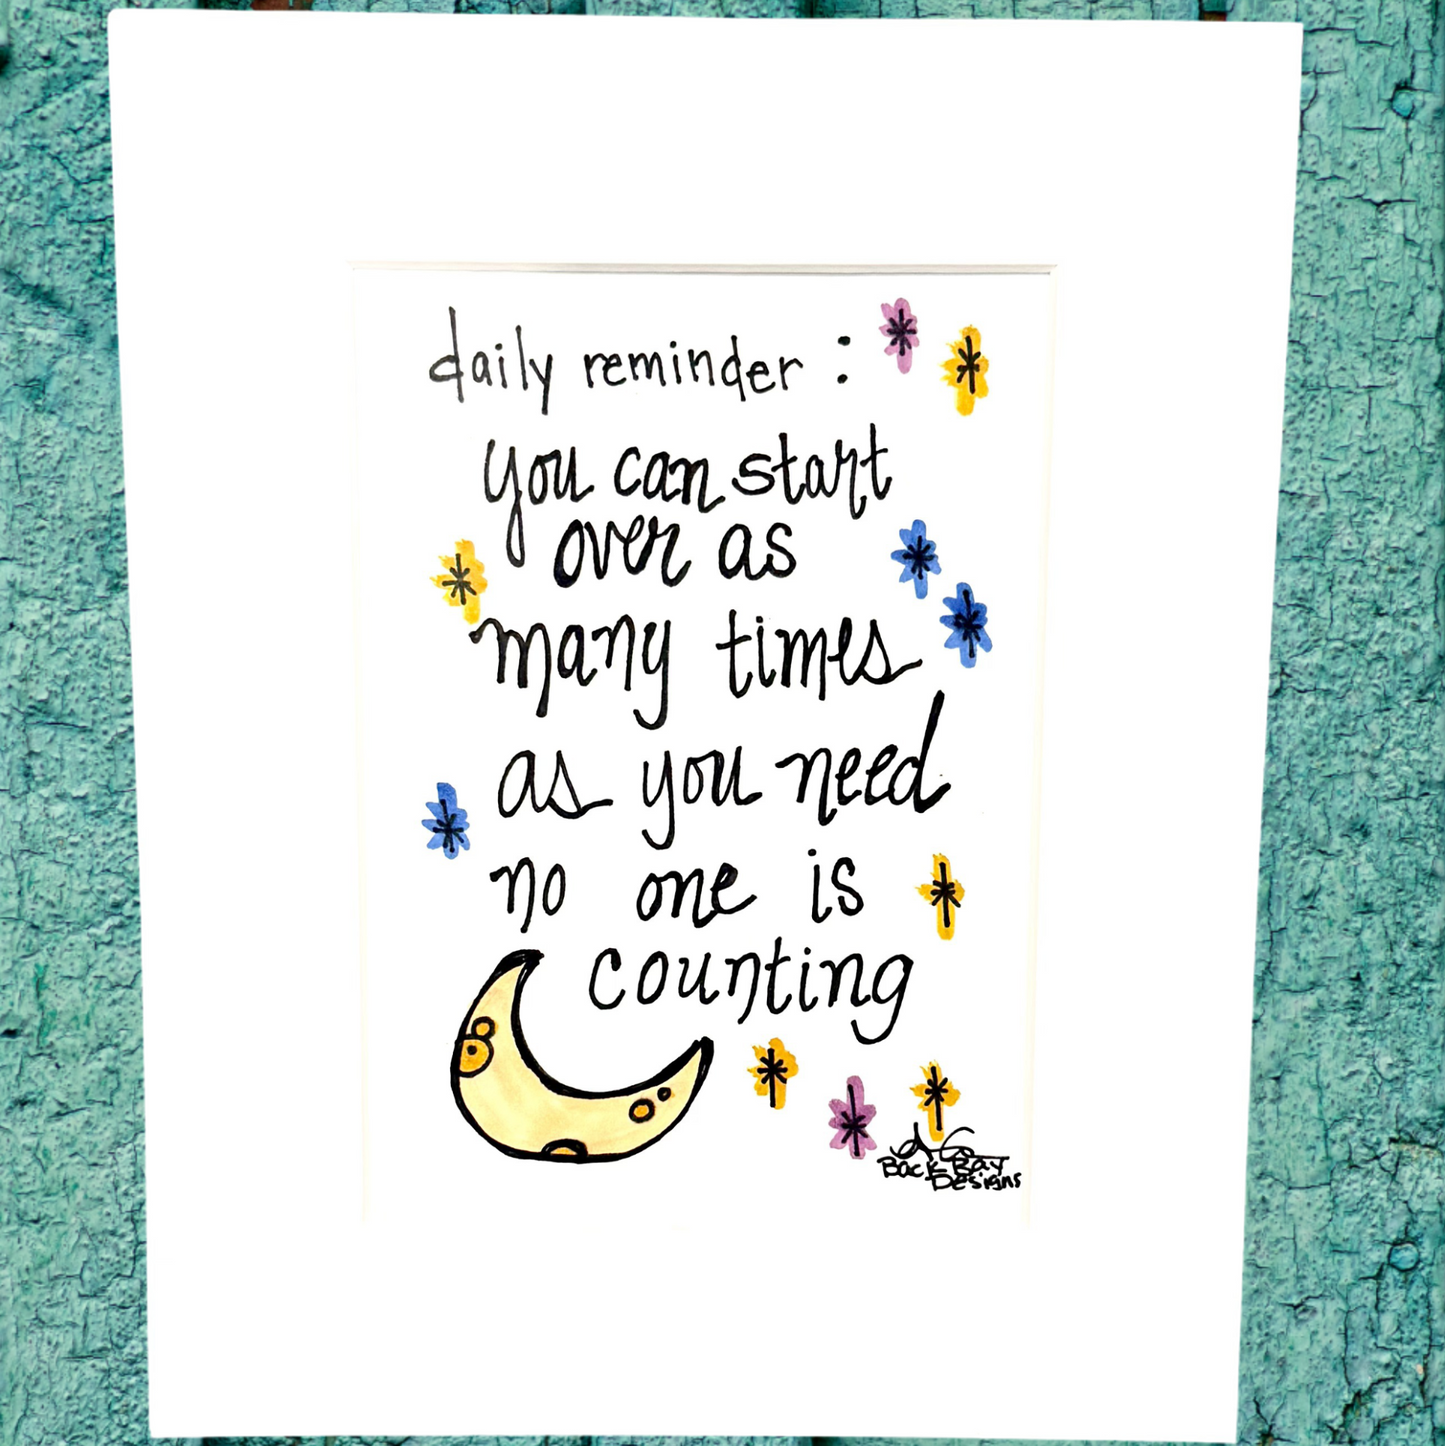 daily reminder :
you can start
over as
many times
as you need
no one is
counting
Back Bay
Designs